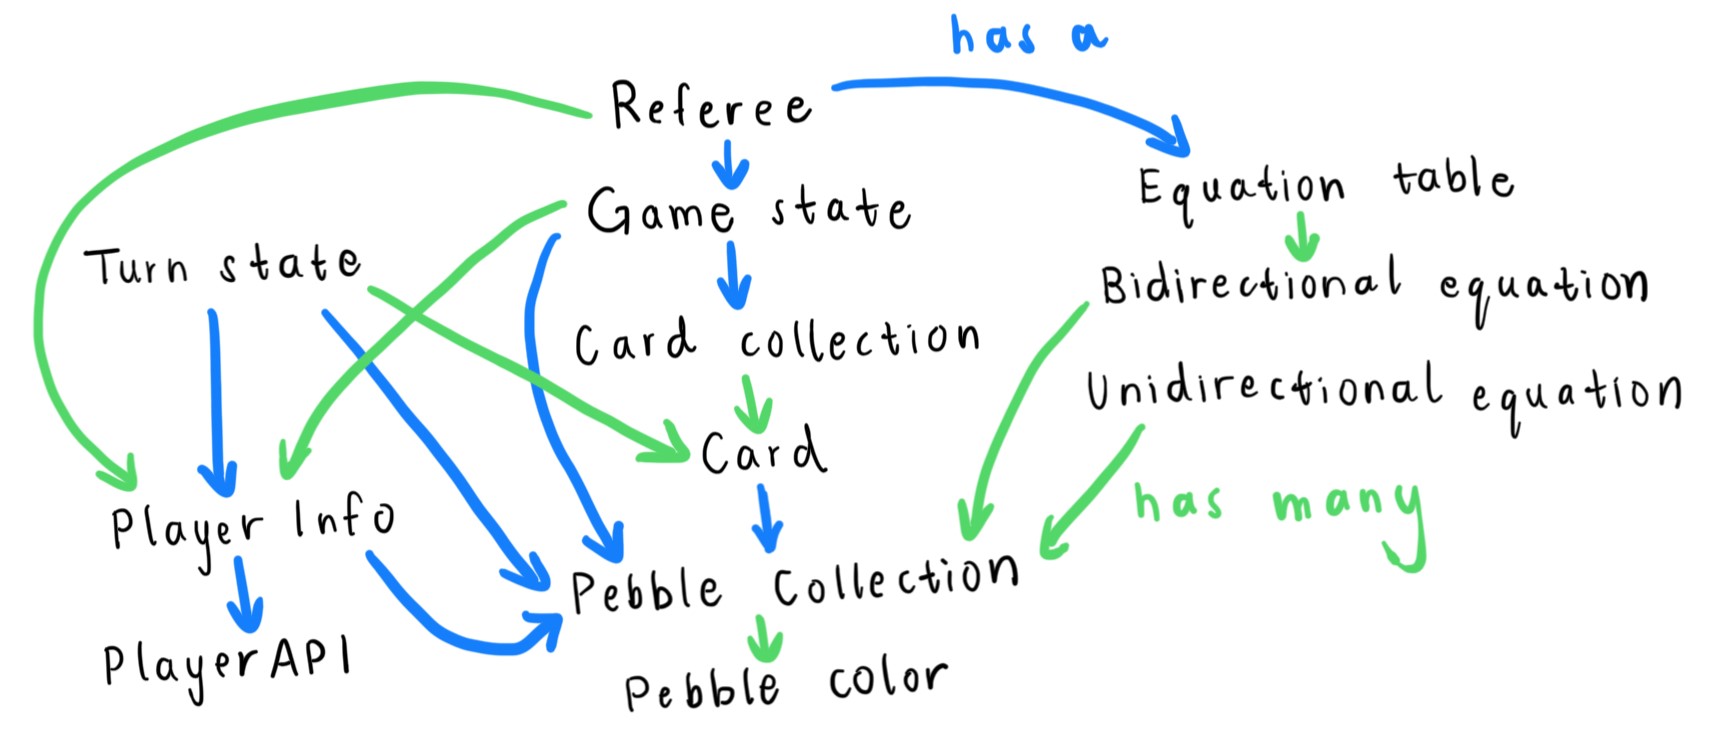 has a
Referee
Equation table
Game state
Turn state
Bidirectional equation
Card collection
Unidirectional equation
Card
has many
Player Info
Pebble Collection
PlayerAPI
Pebble color